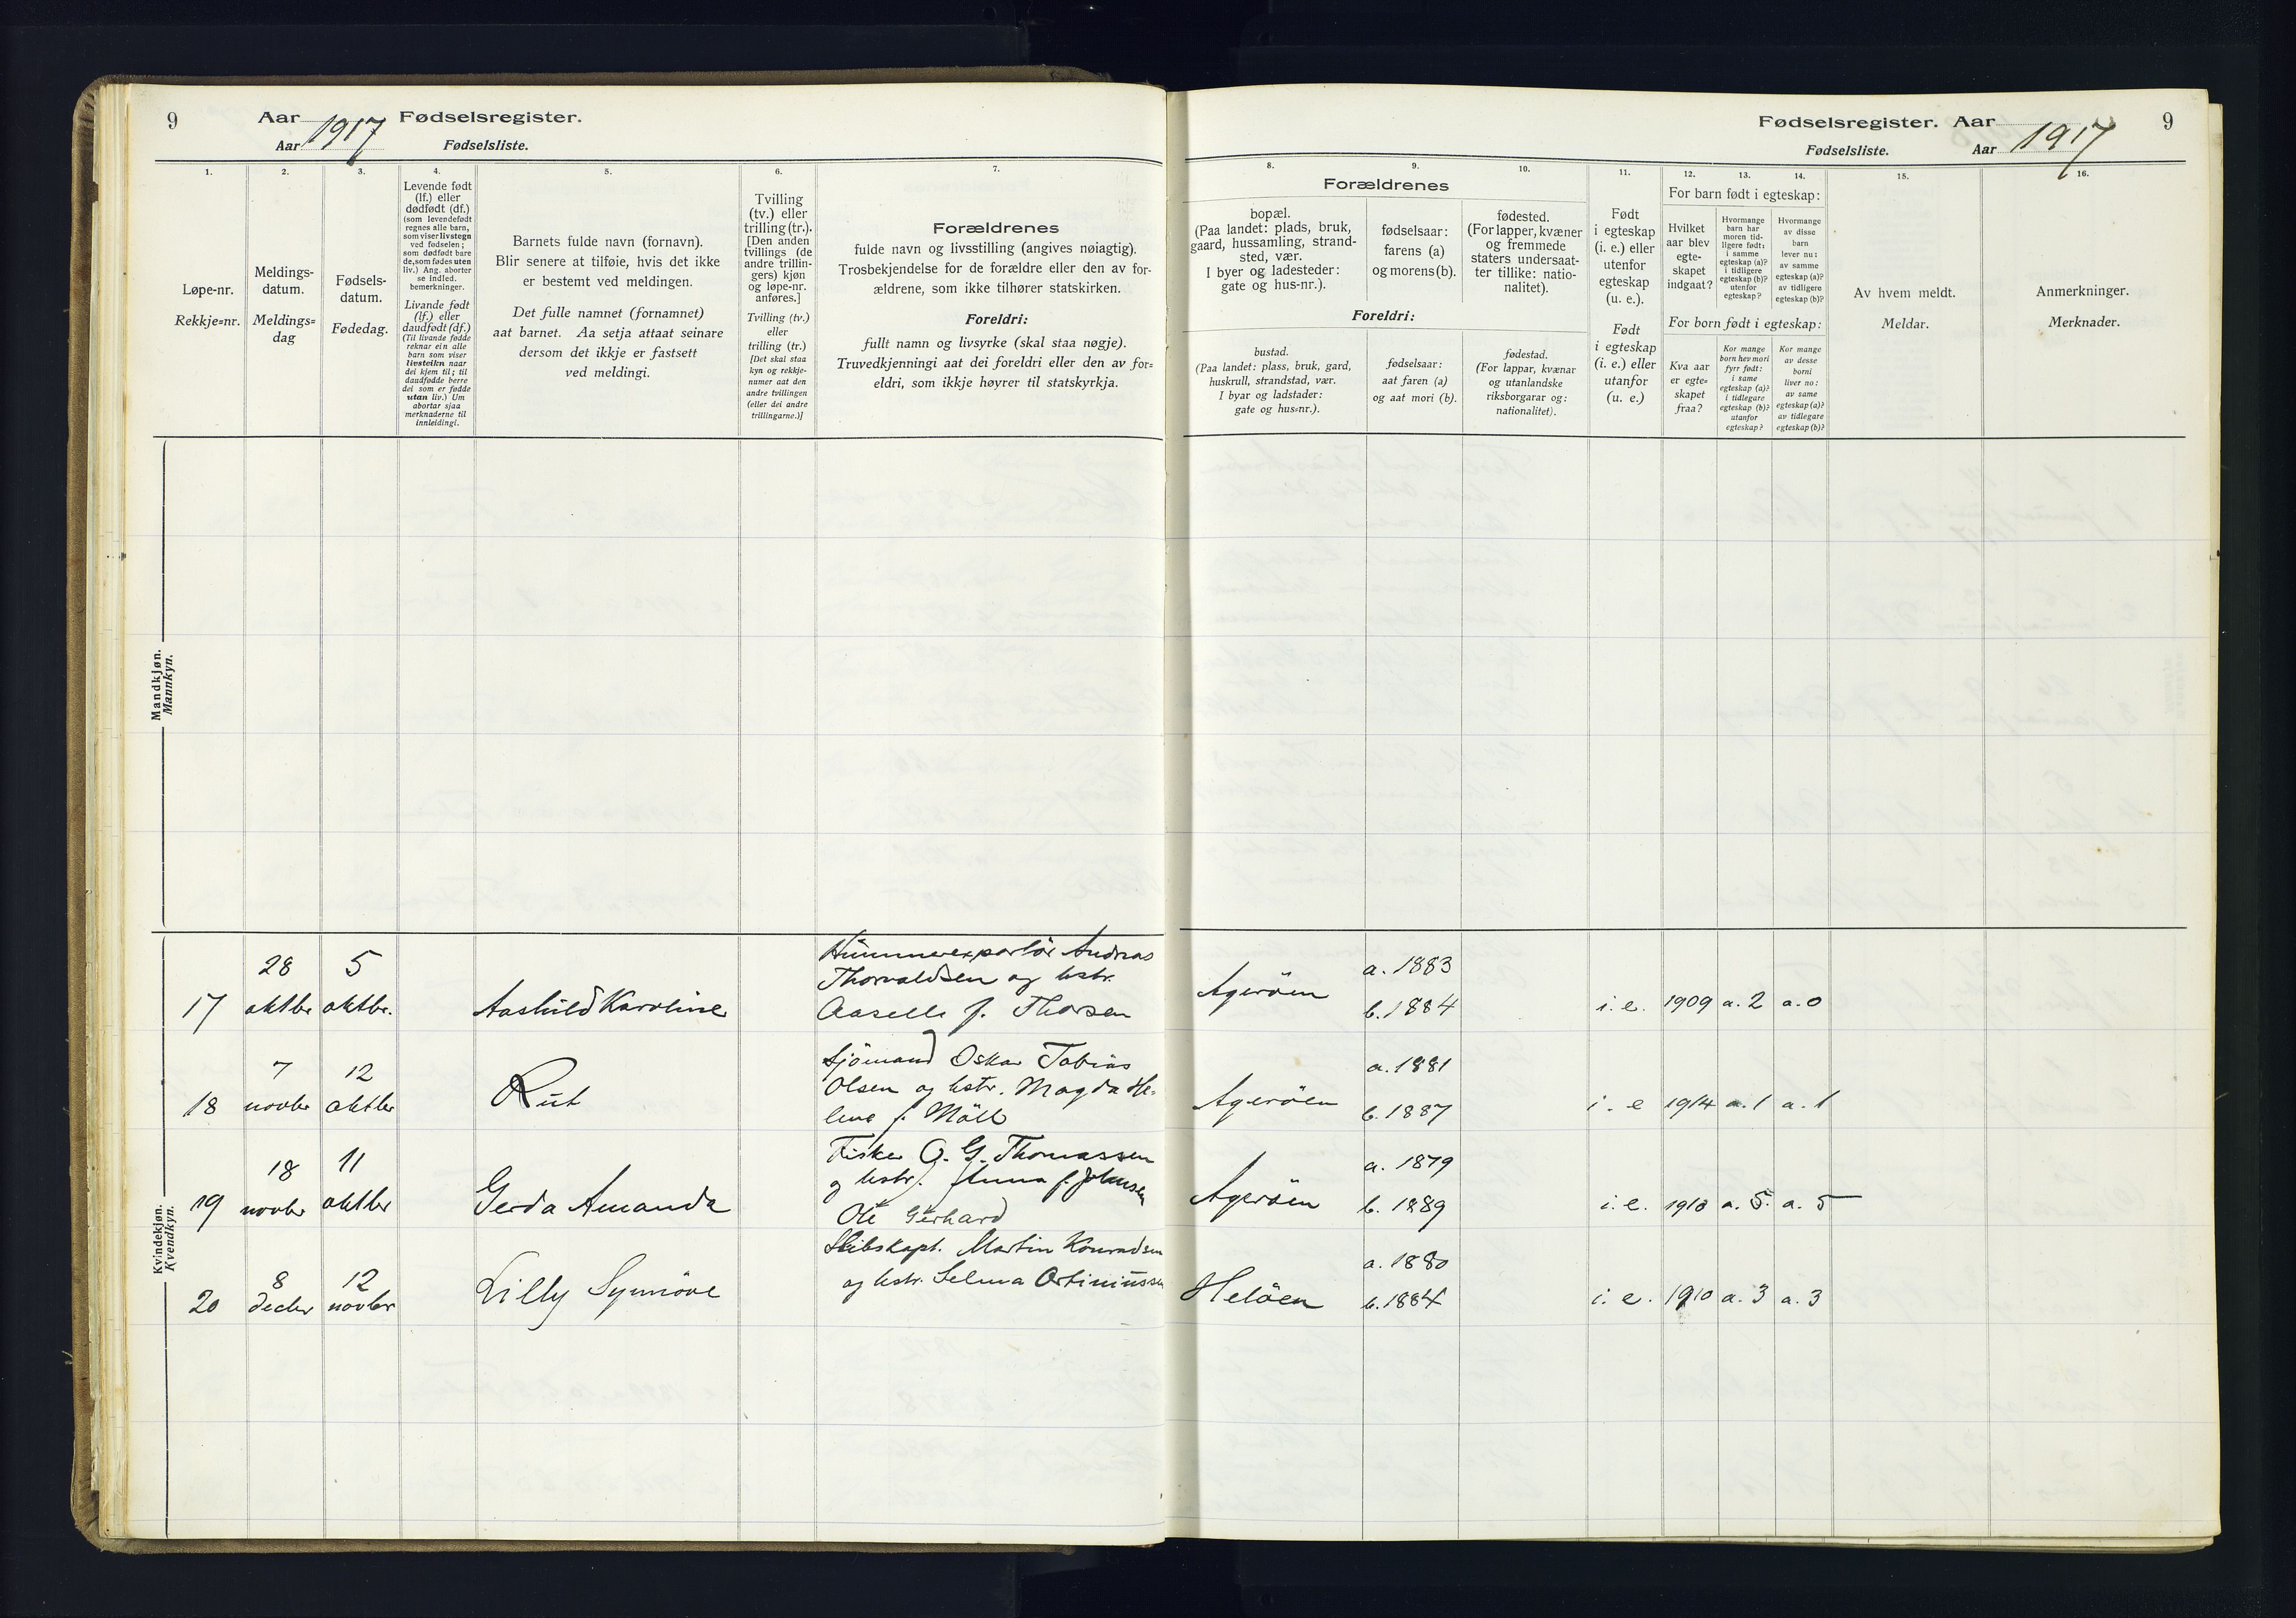 9 Aar 1917 Fødselsregister.
Aar Fødselsliste.
1.
Løpe-nr.
Rekkje=nr.
2.
Meldings-
datum.
Meldings=
dag
3.
Fødsels-
datum.
Fødedag.
4.
Levende født
(lf.) eller
dødfødt (df.)
(som levendefødt
regnes alle barn,
som viser livstegn
ved fødselen;
som dødfødt bare
de, som fødes uten
liv.) Ang. aborter
se indled.
bemerkninger.
Livande født
(lf.) eller
daudfødt (df.)
(Til livande fødde
reknar ein alle
barn som viser
livsteikn naar
dei kjem til; til
daudfødde berre
dei som er fødde
utan liv.) Um
abortar sjaa
merknaderne til
innleidingi.
5.
Barnets fulde navn (fornavn).
Blir senere at tilføie, hvis det ikke
er bestemt ved meldingen.
Det fulle namnet (fornamnet)
aat barnet. Aa setja attaat seinare
dersom det ikkje er fastsett
ved meldingi.
6.
Tvilling
(tv.) eller
trilling (tr.).
[Den anden
tvillings (de
andre trillin-
gers) kjøn
og løpe-nr.
anføres.]
Tvilling (tv.)
eller
trilling (tr.)
[Det skal staa
kyn og rekkje-
numer aat den
andre tvillingen
(eller dei andre
trillingarne.)]
7.
Forældrenes
fulde navn og livsstilling (angives nøiagtig).
Trosbekjendelse for de forældre eller den av for-
ældrene, som ikke tilhører statskirken.
Foreldri:
fullt namn og livsyrke (skal staa nøgje).
Truvedkjenningi aat dei foreldri eller den av for=
eldri, som ikkje høyrer til statskyrkja.
Mandkjøn.
Mannkyn.
Kvindekjøn.
Kvendkyn.
17
28
oktbr
5
oktbr.
Aashild Karoline
Hummerexportør Andreas
Thorvaldsen og hstr.
Aaselle f. Thorsen
18
7
novbr
12
oktbr
Rut
Sjömand Oskar Tobias
Olsen og hstr. Magda He-
lene f. Möll
19
18
novbr
11
oktbr
Gerda Amanda
Fisker O. G. Thomassen
og hstr. Anna f. Johnsen
Ole Gerhard
20
8
decbr
12
novbr
Lilly Synnöve
Skibskapt. Martin Konradsen
og hstr. Selma Ortiniussen
Fødselsregister. Aar 1917 9
Fødselsliste. Aar
8.
Forældrenes
bopæl.
(Paa landet: plads, bruk,
gaard, hussamling, strand-
sted, vær.
I byer og ladesteder:
gate og hus-nr.).
Foreldri:
bustad.
(Paa landet: plass, bruk, gard,
huskrull, strandstad, vær.
I byar og ladstader:
gate og hus=nr.).
9.
fødselsaar:
farens (a)
og morens (b).
fødselsaar:
aat faren (a)
og aat mori (b).
10.
fødested.
(For lapper, kvæner
og fremmede
staters undersaat-
ter tillike: natio-
nalitet).
fødestad.
(For lappar, kvænar
og utanlandske
riksborgarar og:
nationalitet).
11.
Født
i egteskap
(i. e.) eller
utenfor
egteskap
(u. e.).
Født
i egteskap
(i. e.) eller
utanfor
(u. e.)
12. 13. 14.
For barn født i egteskap:
Hvilket
aar blev
egte-
skapet
indgaat?
Hvormange
barn har
moren tid-
ligere født:
i samme
egteskap (a)?
i tidligere
egteskap (b)?
utenfor
egteskap?
Hvormange
av disse
barn
lever nu:
av samme
egteskap (a)?
av tidligere
egteskap (b)?
For born født i egteskap:
Kva aar
er egte=
skapet
fraa?
Kor mange
born hev mori
fyrr født:
i same
egteskap (a)?
i tidlegare
egteskap (b)?
utanfor
egteskap?
Kor mange
av desse
borni
liver no:
av same
egteskap (a)?
av tidlegare
egteskap (b)?
15.
Av hvem meldt.
Meldar.
16.
Anmerkninger.
Merknader.
Ageröen
a. 1883
b. 1884
i. e. 1909 a. 2 a. 0
Ageröen
a. 1881
b. 1887
i. e 1914 a. 1 a. 1
Ageröen
a. 1879
b. 1889
i. e. 1910 a. 5. a. 5
Helöen
a. 1880
b. 1884
i. e. 1910 a. 3 a. 3